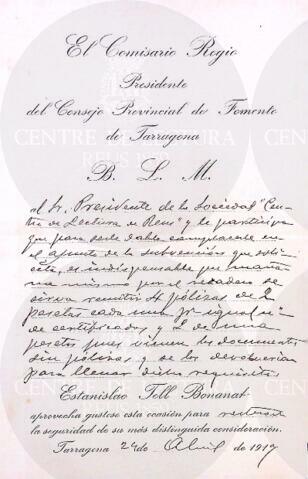 El Comisario Regio
Presidente
del Consejo Provincial de Fomento
de Tarragona
B. L. M.
al Sr. Presidente de la Sociedad "Cen-
tro de Lectura de Reus" y le participa
que para serle dable complacerle en
el asunto de la subvención que
es indispensable que maña-
na mismo por el
sirva remitir 4 pólizas de 2
pesetas cada una
de certificados y 2 de una
peseta pues vienen los documentos
sin pólizas y se los devolverían
para llenar dicho requisito.
Estanislao Tell Bonanat
aprovecha gustoso esta ocasión para reiterarle
la seguridad de su más distinguida consideración.
Tarragona 24 de Abril de 1917
CENTRE DE LECTURA
REUS 1859